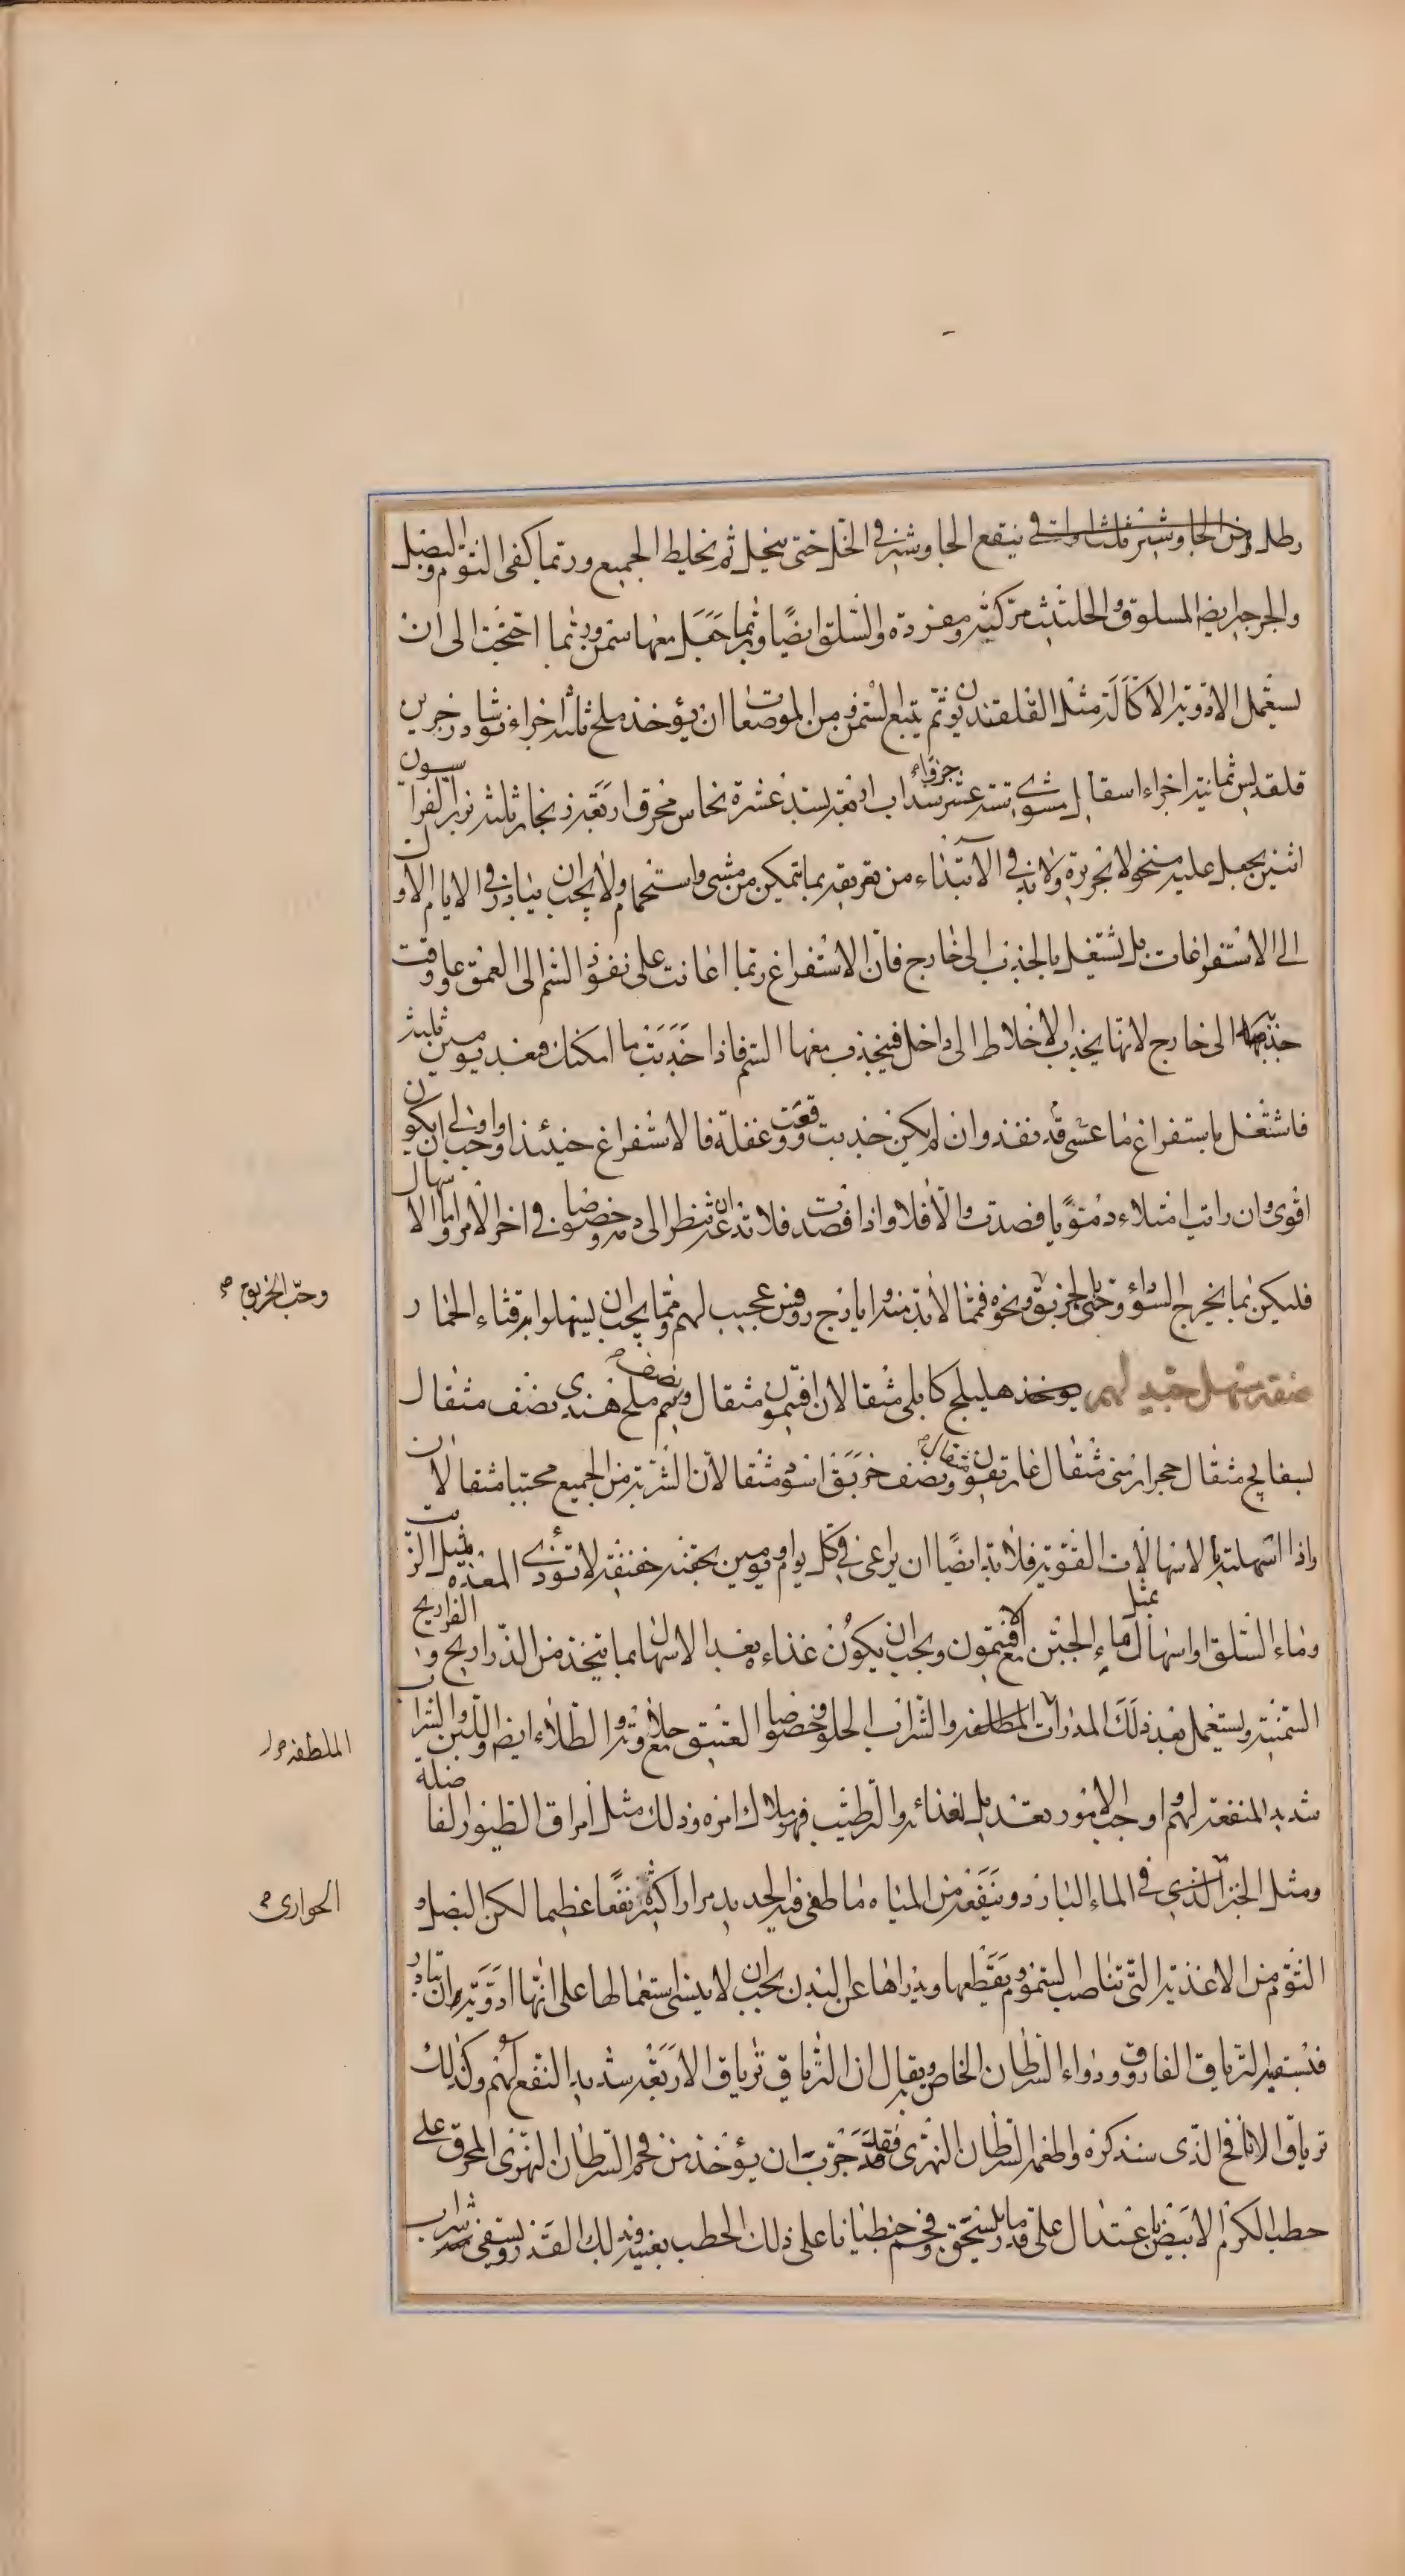 رطل ومن الجاوشير ثلثا واق في ينقع الجاوشير في الخل حتى ينحل ثم يخلط الجميع وربما كفى الثوم والبصل
والجرجير ايضا المسلوق والحلتيت مركبة ومفردة والسلق ايضا وربما جعل معها سمن وربما احتجت الى ان
تستعمل الادوية الاكالة مثل القلقنديون ثم يتبع السمن من الموضع ان يؤخذ ملح ثلثة اجزاء نوشادر جزين
قلقديس ثمانية اجزاء اسقال مشوى ستة عشر جزؤاء سداب اربعة بسد عشرة نحاس محرق اربعة زنجار ثلثة بزر الفراسون
اثنين يجعل عليه منخولا بحريرة ولابد في الابتداء من تعريقه بما يتمكن من مشى واستحمام ولا يجب ان يبادر في الايام الاول
الى الاستفراغات بل يشتغل بالجذب الى خارج فان الاستفراغ ربما اعانت على نفوذ السم الى العمق وعاوقت
جذبه الى خارج لانها يجذب الاخلاط الى داخل فيجذب معها السم فاذا جذبت ما امكنك فبعد يومين ثلثة
فاشتغل باستفراغ ما عسى قد نفذ وان لم يكن جذبت ووقعت غفلة فالاستفراغ حينئذ اوجب واولى ان يكون
اقوى وان رايت امتلاء دمويا فصدت والا فلا واذا فصدت فلا تدع ان تنظر الى دمه وخصوصا في اخر الامر واما الاسهال
فليكن بما يخرج السوداء وحتى بالخربق ونحوه فمما لابد منه وايارج روفس عجيب لهم ومما يجب ان يسهلوا به قثاء الحمار
صفة مسهل جيد لهم يوخذ هليلج كابلى مثقالان افتيمون مثقال ونصف ملح هندى نصف مثقال
بسفايج مثقال حجر ارمنى مثقال غاريقون مثقال ونصف خربق اسود مثقالان الشربة من الجميع محببا مثقالان
واذا اسهلته بالاسهالات القوية فلابد ايضا ان يراعى في كل يوم او يومين بحقنة خفيفة لا تؤذى المعدة بمثل الزيت
وماء السلق او اسهال بمثل ماء الجبن مع الافتيمون ويجب ان يكون غذاءه بعد الاسهال مما يتخذ من الذراريج الفراريج و
السمنة ويستعمل بعد ذلك المدرات الملطفة والشراب الحلو وخصوصا العتيق حلاوته مع الطلاء ايضا واللبن والشراب
شديد المنفعة لهم واوجب الامور تعديل الغذاء والترطيب فهو ملاك امره وذلك مثل امراق الطيور الفاضلة
ومثل الخبز الذى في الماء البارد وينفعه من المياه ما طفى فيه الحديد مرارا كثيرة نفعا عظيما لكن البصل و
الثوم من الاغذية التى تناصب السموم وتقطعها ويدراها عن البدن يجب ان لا ينسى استعمالها على انها ادوية وان تبادر
فتسقيه الترياق الفاروق ودواء السرطان الخاص به ويقال ان الترياق ترياق الاربعة شديد النفع لهم وكذلك
ترياق الانافح الذى سنذكره واطعمه السرطان النهرى فقد جرب ان يؤخذ من فحم السرطان النهرى المحرق على
حطب الكرم الابيض باعتدال على قدر ما ينسحق وفحم جنطيانا على ذلك الحطب بعينه وبذلك القدر ويسقى شراب
وحب الخربق صح
الملطفة
الحوارى